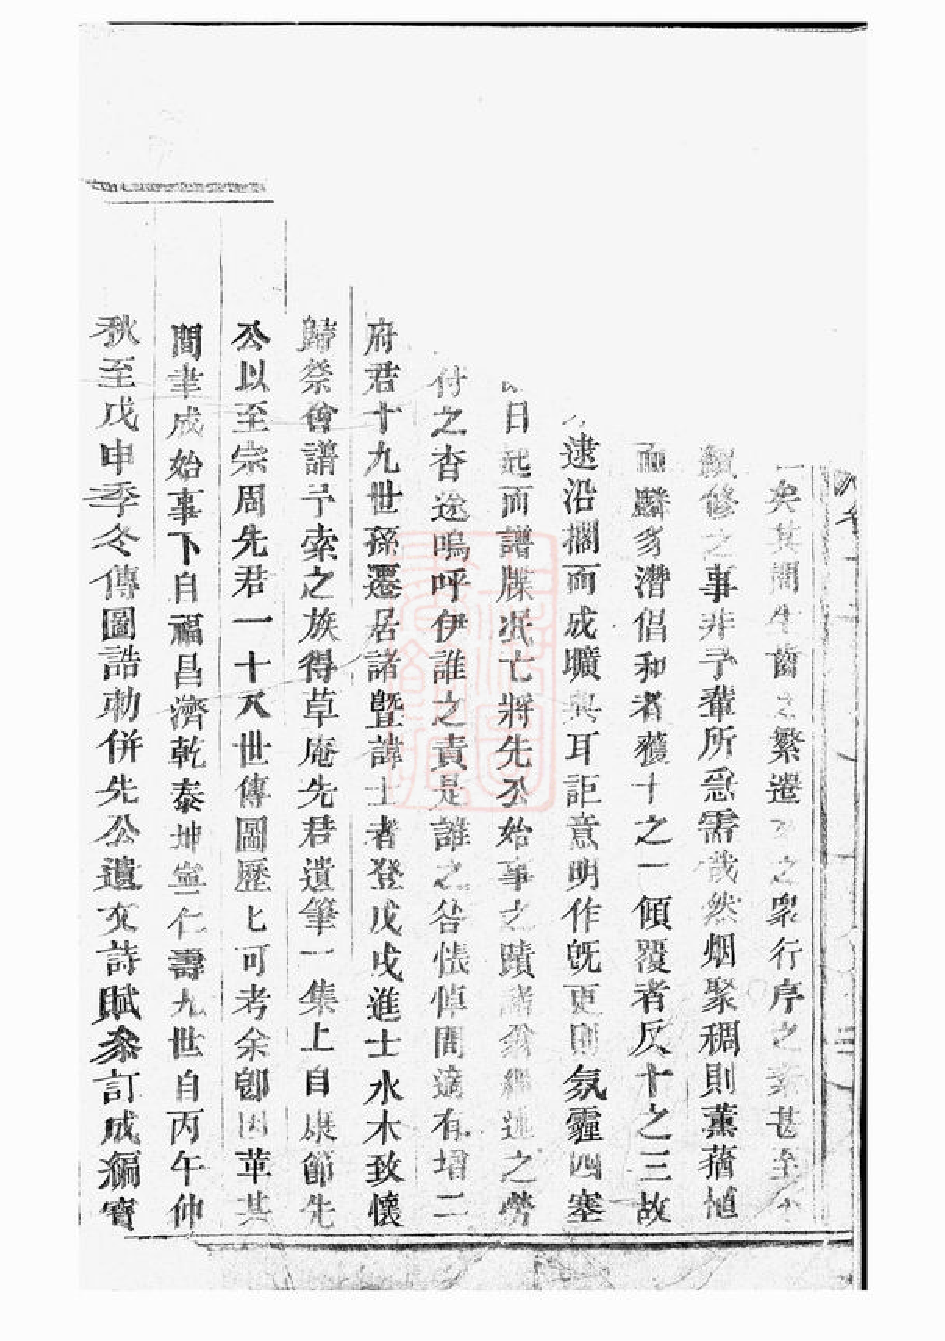 矣其間生齒之繁遷之衆行序之紊甚至
續修之事非予輩所急需哉然烟聚稠則薰蕕植
而麟豸潛倡和者獲十之一傾覆者反十之三故
逮沿擱而成曠典耳詎意明作旣更則氛霾四塞
日起而譜牒泯亡將先公始事之蹟諸翁繼述之勞
付之杳途嗚呼伊誰之責是誰之咎悵悼間適有增二
府君十九世孫遷居諸暨諱士者登戊戌進士水木致懷
歸祭會譜予索之族得草庵先君遺筆一集上自康節先
公以至宗周先君一十八世傳圖歷七可考余卽因革其
間聿成始事下自福昌濟乾泰坤寧仁壽九世自丙午仲
秋至戊申季冬傳圖誥勅併先公遺文詩賦叅訂成編寳